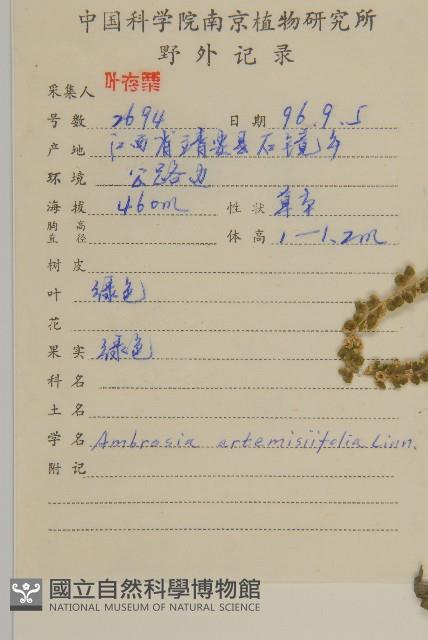 中国科学院南京植物研究所
野外记录
采集人 叶存粟
号数 2694 日期 96.9.5
产地 江西省靖安县石镜乡
环境 公路边
海拔 460m 性状 草本
胸高直径 体高 1—1.2m
树皮
叶 绿色
花
果实 绿色
科名
土名
学名 Ambrosia artemisiifolia Linn.
附记
國立自然科學博物館
NATIONAL MUSEUM OF NATURAL SCIENCE